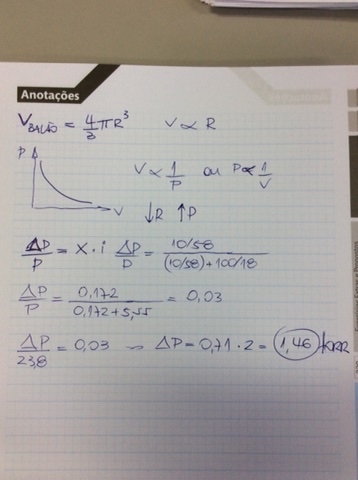 Anotações
V_BALÃO = 4/3 πR³   V ∝ R
P
V
V ∝ 1/P ou P ∝ 1/V
↓R ↑P
ΔP/P = X · i   ΔP/P = 10/58 / (10/58) + 100/18
ΔP/P = 0,172 / 0,172 + 5,55 = 0,03
ΔP/23,8 = 0,03 → ΔP = 0,71 · 2 = 1,46